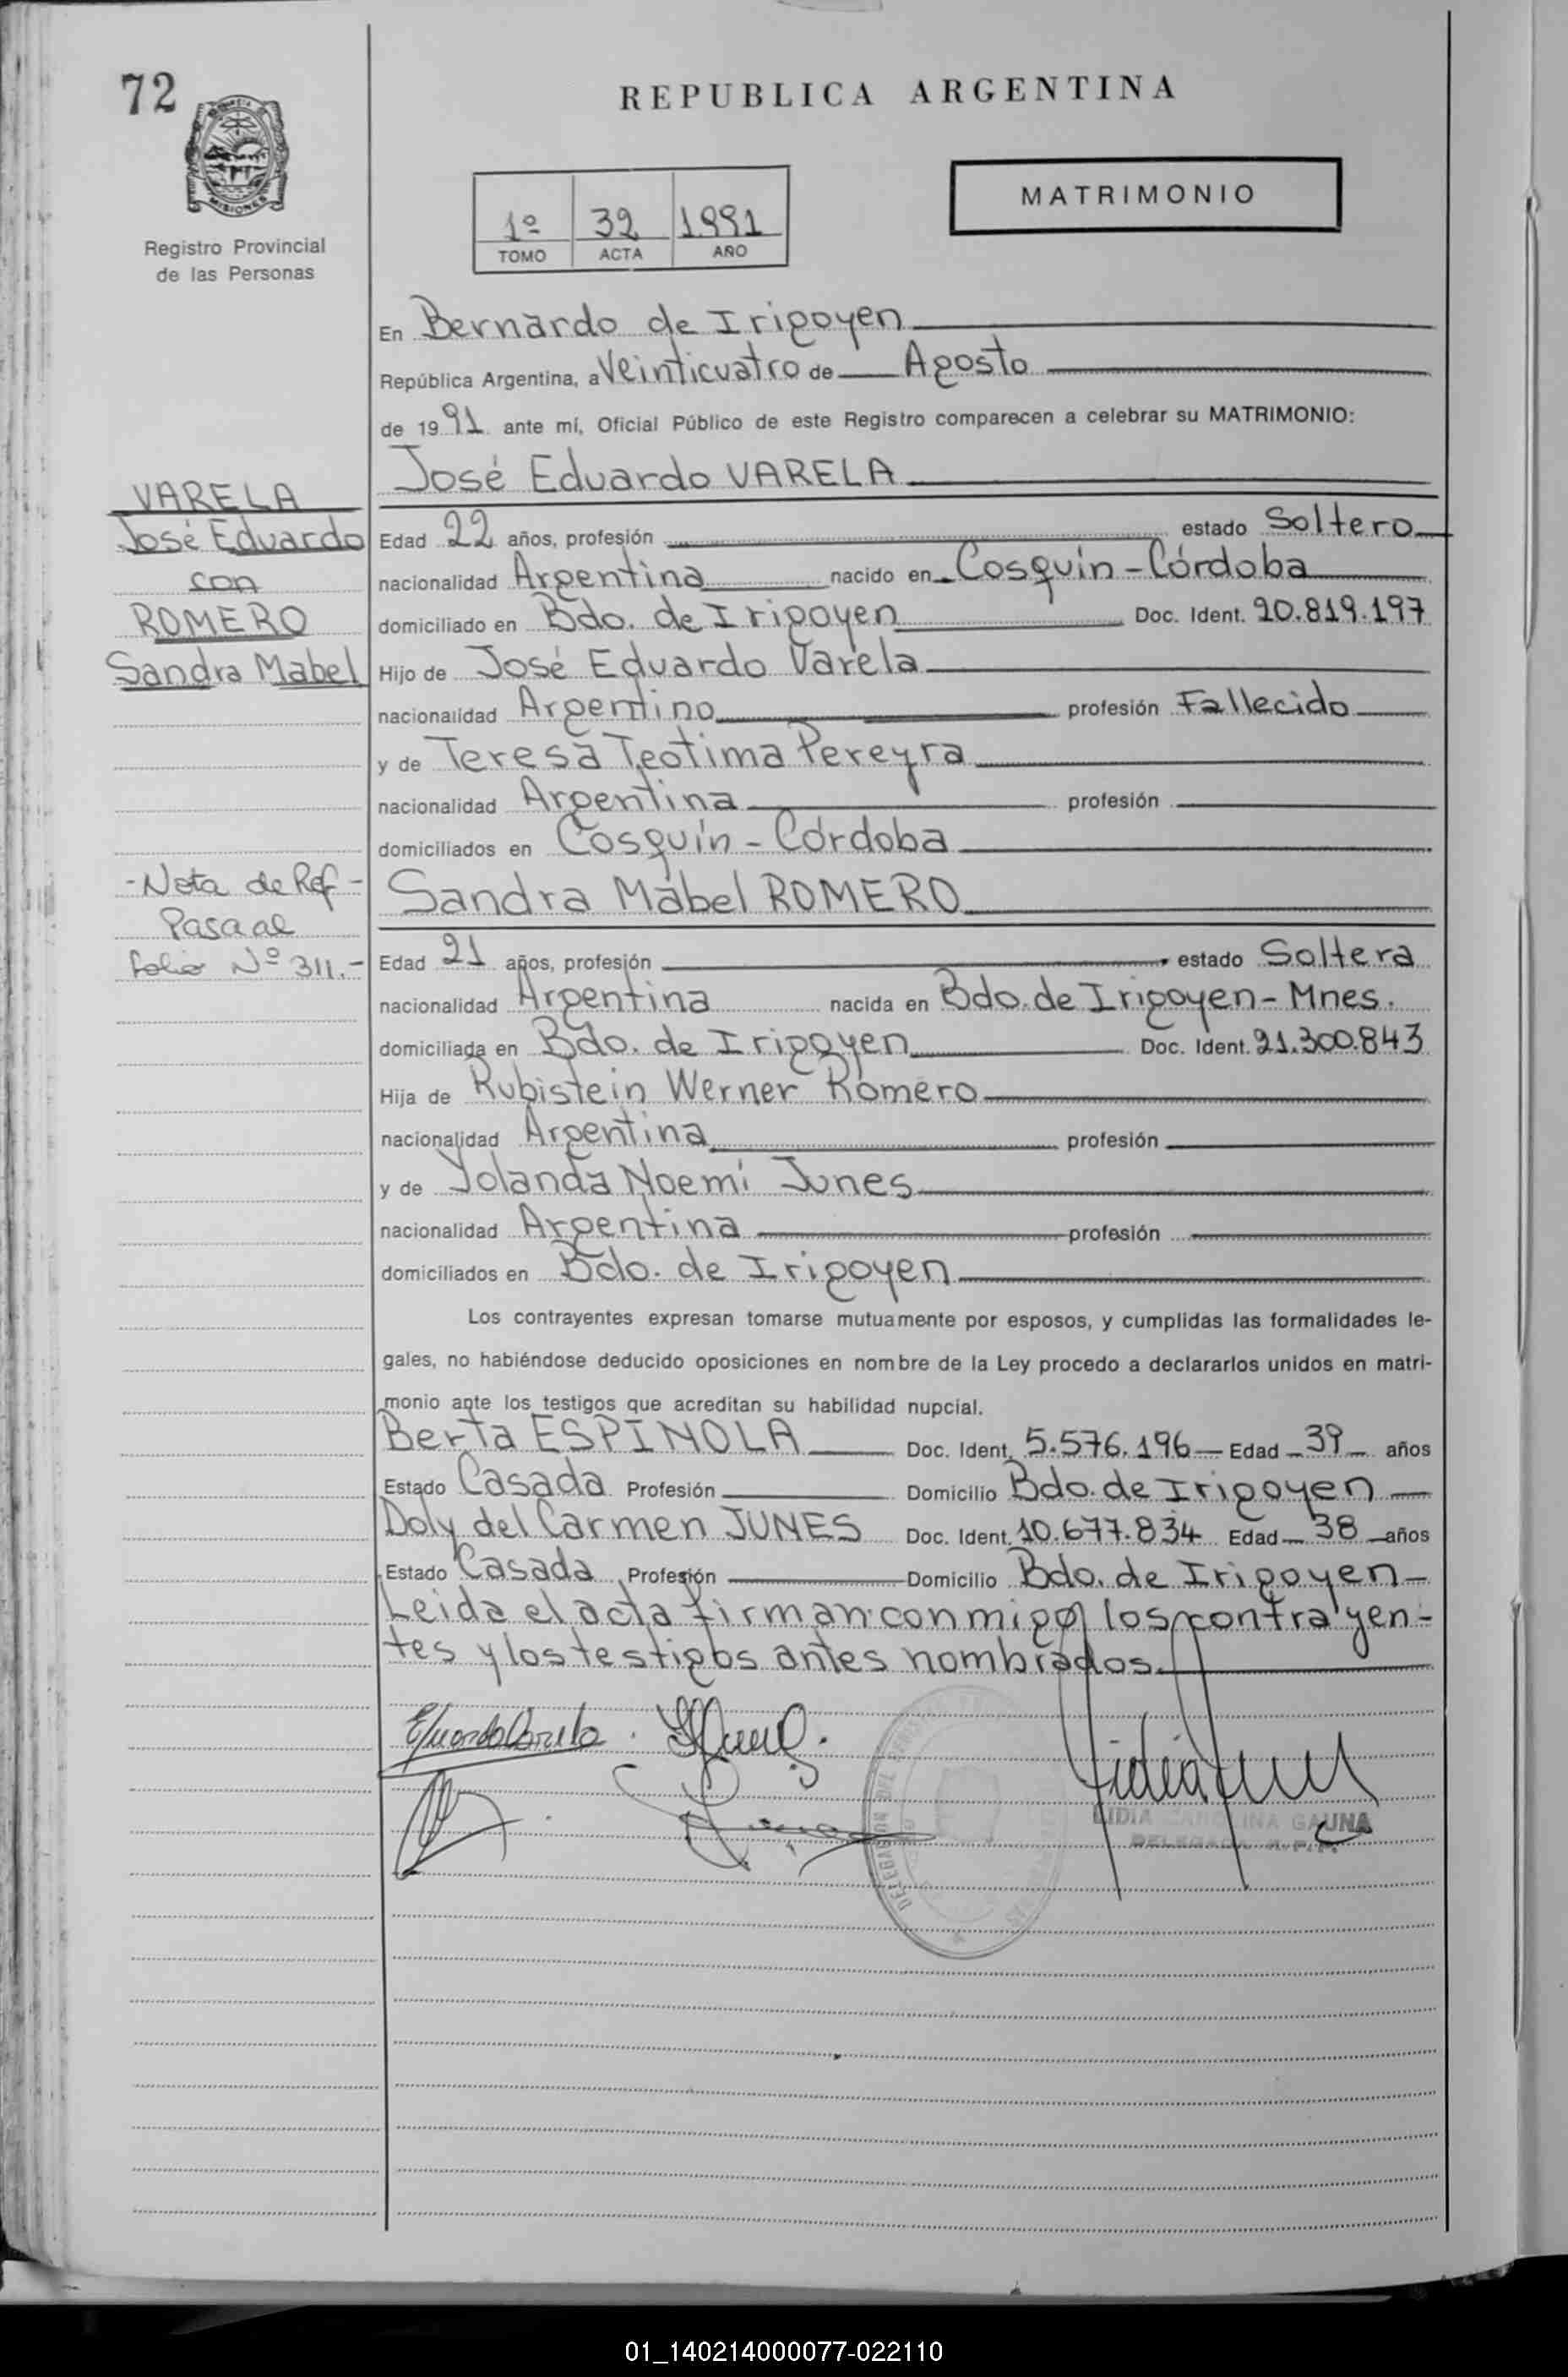 72
REPUBLICA ARGENTINA
MISIONES
Registro Provincial
de las Personas
1º 32 1991
TOMO ACTA AÑO
MATRIMONIO
En Bernardo de Irigoyen
República Argentina, a Veinticuatro de Agosto
de 1991 ante mí, Oficial Público de este Registro comparecen a celebrar su MATRIMONIO:
José Eduardo VARELA
VARELA
José Eduardo
con
ROMERO
Sandra Mabel
Edad 22 años, profesión estado Soltero
nacionalidad Argentina nacido en Cosquín-Córdoba
domiciliado en Bdo. de Irigoyen Doc. Ident. 20.819.197
Hijo de José Eduardo Varela
nacionalidad Argentino profesión Fallecido
y de Teresa Teotima Pereyra
nacionalidad Argentina profesión
domiciliados en Cosquín - Córdoba
-Nota de Ref-
Pasa al
folio Nº 311.-
Sandra Mabel ROMERO
Edad 21 años, profesión estado Soltera
nacionalidad Argentina nacida en Bdo. de Irigoyen - Mnes.
domiciliada en Bdo. de Irigoyen Doc. Ident. 21.300.843
Hija de Rubistein Werner Romero
nacionalidad Argentina profesión
y de Yolanda Noemí Junes
nacionalidad Argentina profesión
domiciliados en Bdo. de Irigoyen
Los contrayentes expresan tomarse mutuamente por esposos, y cumplidas las formalidades le-
gales, no habiéndose deducido oposiciones en nombre de la Ley procedo a declararlos unidos en matri-
monio ante los testigos que acreditan su habilidad nupcial.
Berta ESPINOLA Doc. Ident. 5.576.196 Edad 39 años
Estado Casada Profesión Domicilio Bdo. de Irigoyen
Doly del Carmen JUNES Doc. Ident. 10.677.834 Edad 38 años
Estado Casada Profesión Domicilio Bdo. de Irigoyen
Leida el acta firman conmigo los contrayen-
tes y los testigos antes nombrados.
LIDIA CAROLINA GAUNA
DELEGADA R.P.P.
01_140214000077-022110